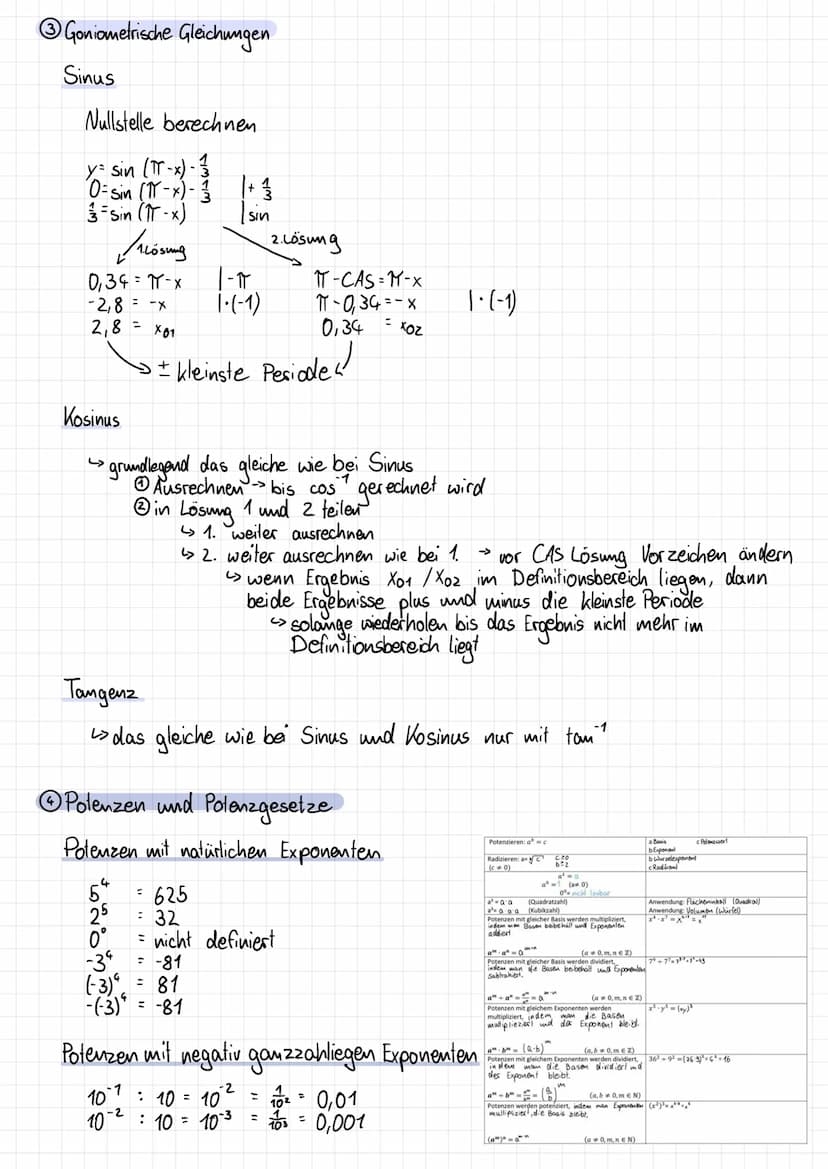 ③ Goniometrische Gleichungen
Sinus
Nullstelle berechnen
y = sin (π-x) - 1/3
0 = sin (π-x) - 1/3 |+ 1/3
1/3 = sin (π-x) | sin
1. Lösung
2. Lösung
0,34 = π-x |-π
-2,8 = -x |·(-1)
2,8 = x01
π-CAS = π-x
π-0,34 = -x |·(-1)
0,34 = x02
± kleinste Periode
Kosinus
↳ grundlegend das gleiche wie bei Sinus
① Ausrechnen → bis cos⁻¹ gerechnet wird
② in Lösung 1 und 2 teilen
↳ 1. weiter ausrechnen
↳ 2. weiter ausrechnen wie bei 1. → vor CAS Lösung Vorzeichen ändern
↳ wenn Ergebnis x01 / x02 im Definitionsbereich liegen, dann
beide Ergebnisse plus und minus die kleinste Periode
↳ solange wiederholen bis das Ergebnis nicht mehr im
Definitionsbereich liegt
Tangenz
↳ das gleiche wie bei Sinus und Kosinus nur mit tan⁻¹
④ Potenzen und Potenzgesetze
Potenzen mit natürlichen Exponenten
5⁴ = 625
2⁵ = 32
0⁰ = nicht definiert
-3⁴ = -81
(-3)⁴ = 81
-(-3)⁴ = -81
Potenzen mit negativ ganzzahliegen Exponenten
10⁻¹ : 10 = 10⁻² = 1/10² = 0,01
10⁻² : 10 = 10⁻³ = 1/10³ = 0,001
Potenzieren: aᵇ = c
a Basis c Potenzwert
b Exponent
Radizieren: a = ᵇ√c c≥0 b≥2
(c ≠ 0)
b Wurzelexponent
c Radikand
a¹ = a
a⁰ = 1 (a≠0)
0⁰ = nicht lösbar
a² = a·a (Quadratzahl)
Anwendung: Flächeninhalt (Quadrat)
a³ = a·a·a (Kubikzahl)
Anwendung: Volumen (Würfel)
Potenzen mit gleicher Basis werden multipliziert,
indem man Basen beibehält und Exponenten
addiert
(a ≠ 0, m, n ∈ Z)
Potenzen mit gleicher Basis werden dividiert,
indem man die Basen beibehält und Exponenten
subtrahiert.
(a ≠ 0, m, n ∈ Z)
Potenzen mit gleichem Exponenten werden
multipliziert, indem man die Basen
multipliziert und der Exponent bleibt.
aᵐ · bᵐ = (a·b)ᵐ (a, b ≠ 0, m ∈ Z)
Potenzen mit gleichem Exponenten werden dividiert,
indem man die Basen dividiert und
des Exponent bleibt.
aᵐ ÷ bᵐ = aᵐ/bᵐ = (a/b)ᵐ (a, b ≠ 0, m ∈ N)
Potenzen werden potenziert, indem man Exponenten
multipliziert, die Basis bleibt.
(a ≠ 0, m, n ∈ N)